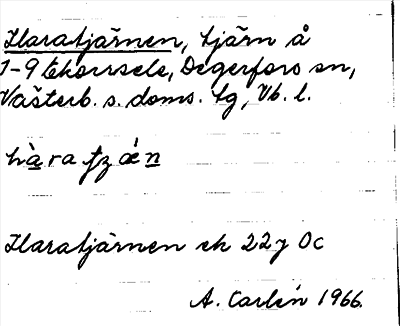 Haratjärnen, tjärn å
1-9 Ekorrsele, Degerfors sn,
Västerb. s. doms. tg, Vb. l.
Haratjärnen ek 22 7 0c
A. Carlén 1966.